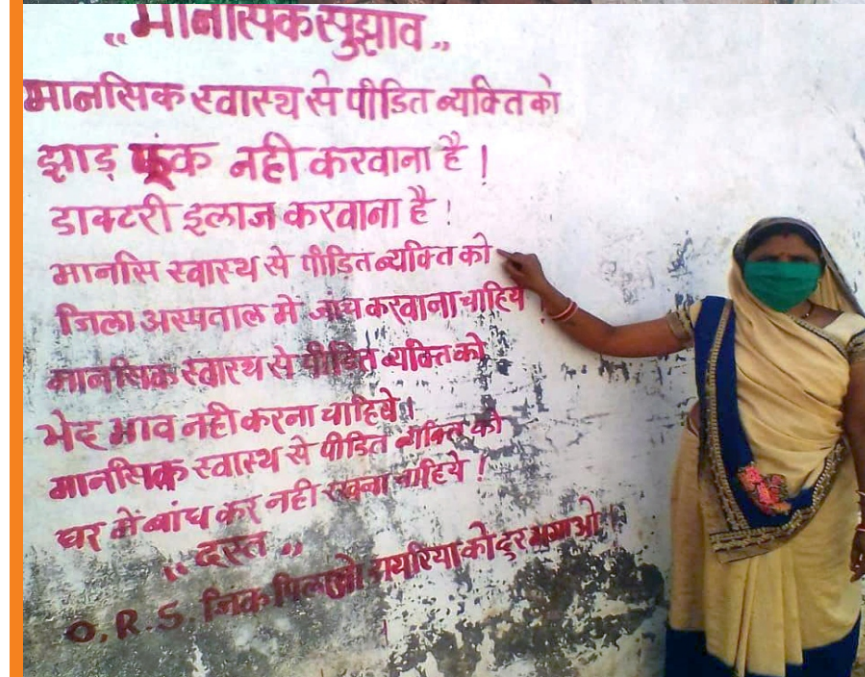 ,, मानसिक सुझाव ,,
मानसिक स्वास्थ्य से पीडित व्यक्ति को
झाड़ फूंक नही करवाना है !
डाक्टरी इलाज करवाना है !
मानसि स्वास्थ से पीडित व्यक्ति को
जिला अस्पताल में जांच करवाना चाहिये !
मानसिक स्वास्थ से पीडित व्यक्ति को
भेद भाव नही करना चाहिये !
मानसिक स्वास्थ से पीडित व्यक्ति को
घर में बांध कर नही रखना चाहिये !
,, दस्त ,,
O. R. S. जिंक पिलाओ डायरिया को दूर भगाओ !